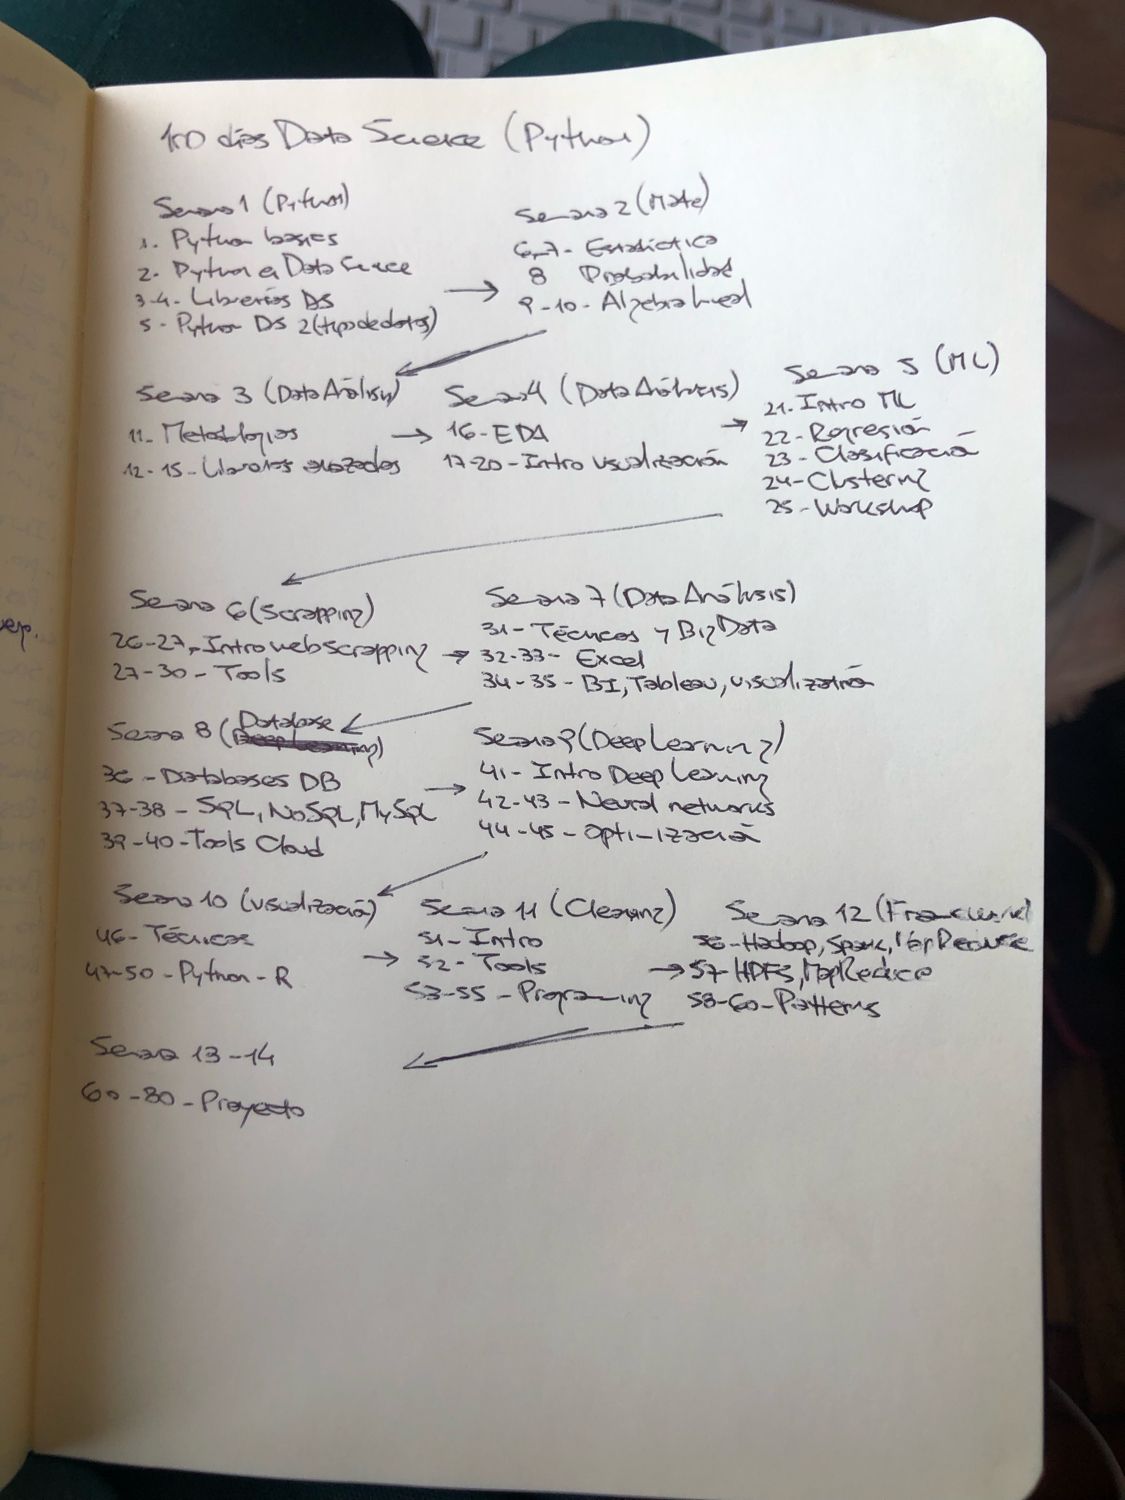 100 días Data Science (Python)
Semana 1 (Python)
1. Python bases
2. Python en Data Science
3-4- Librerías DS
5- Python DS 2 (tipo de datos)
Semana 2 (Mate)
6,7- Estadística
8 Probabilidad
9-10- Algebra lineal
Semana 3 (Data Análisis)
11- Metodologías
12-15- Librerías avanzadas
Semana 4 (Data Análisis)
16- EDA
17-20- Intro visualización
Semana 5 (ML)
21. Intro ML
22- Regresión
23- Clasificación
24- Clustering
25- Workshop
Semana 6 (Scrapping)
26-27- Intro web scrapping
27-30- Tools
Semana 7 (Data Análisis)
31- Técnicas y Big Data
32-33- Excel
34-35- BI, Tableau, visualización
Semana 8 (Database)
36- Databases DB
37-38- SQL, NoSQL, MySQL
39-40- Tools Cloud
Semana 9 (Deep Learning)
41- Intro Deep Learning
42-43- Neural networks
44-45- Optimización
Semana 10 (visualización)
46- Técnicas
47-50- Python - R
Semana 11 (Cleaning)
51- Intro
52- Tools
53-55- Programing
Semana 12 (Framework)
56- Hadoop, Spark, MapReduce
57- HDFS, MapReduce
58-60- Patterns
Semana 13-14
60-80- Proyecto